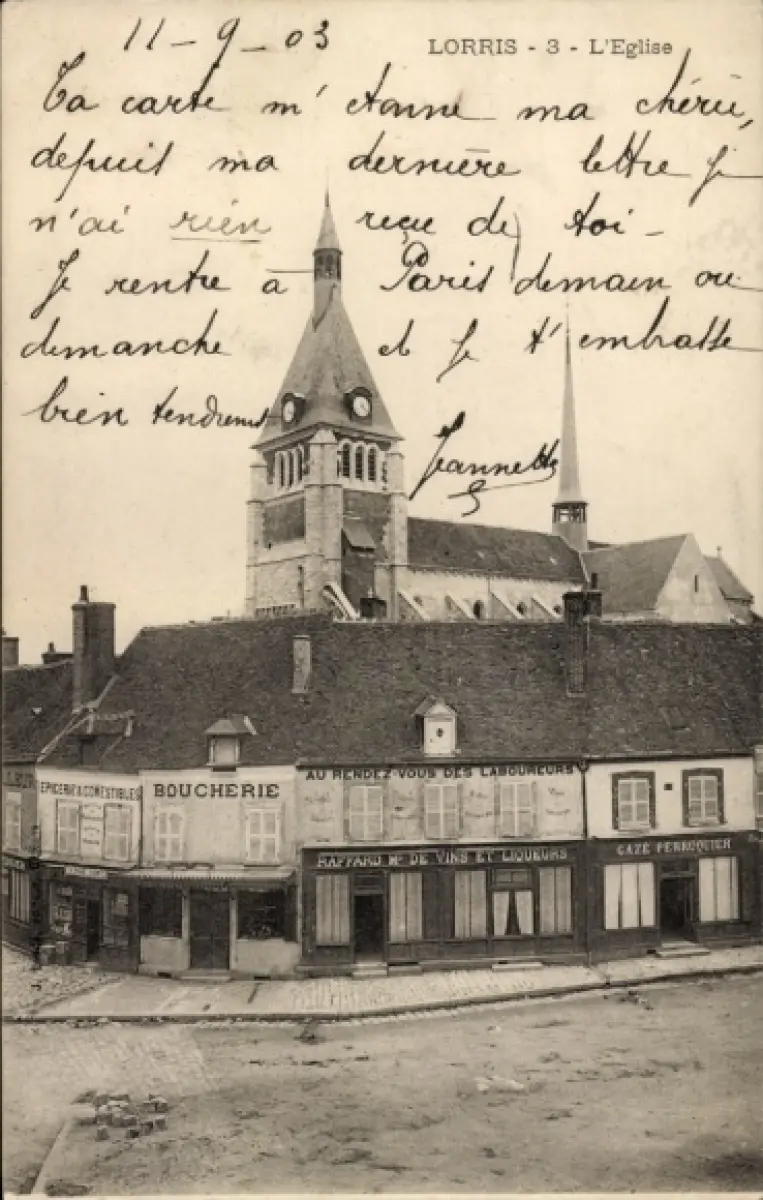 11-9-03
LORRIS - 3 - L'Eglise
Ta carte m'étonne ma chérie,
depuis ma dernière lettre je
n'ai rien reçu de toi -
Je rentre à Paris demain ou
dimanche et je t'embrasse
bien tendrement
Jeannette
EPICERIE & COMESTIBLES
BOUCHERIE
AU RENDEZ-VOUS DES LABOUREURS
RAFFARD Md DE VINS ET LIQUEURS
CAFÉ PERROQUIER